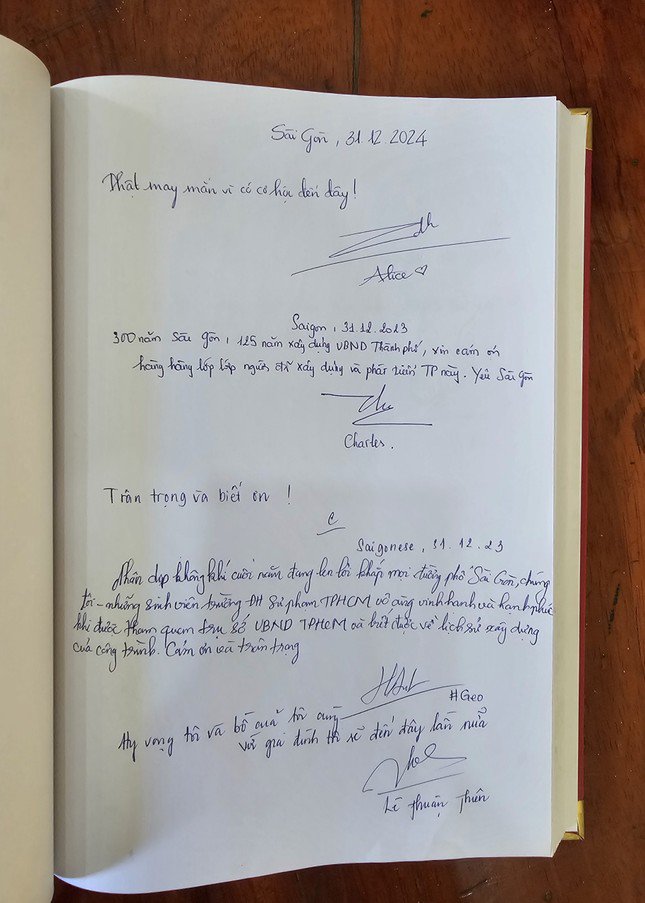 Sài Gòn, 31.12.2024
Thật may mắn vì có cơ hội đến đây!
Alice ♡
Saigon, 31.12.2023
300 năm Sài Gòn, 125 năm xây dựng UBND Thành phố, xin cám ơn
hàng hàng lớp lớp người đã xây dựng và phát triển TP này. Yêu Sài Gòn
Charles.
Trân trọng và biết ơn !
C
Saigonese, 31.12.23
Nhân dịp không khí cuối năm đang len lỏi khắp mọi đường phố Sài Gòn, chúng
tôi - những sinh viên trường ĐH Sư phạm TPHCM vô cùng vinh hạnh và hạnh phúc
khi được tham quan trụ sở UBND TPHCM và biết được về lịch sử xây dựng
của công trình. Cám ơn và trân trọng
#Geo
Hy vọng tôi và bố của tôi cùng
với gia đình thì sẽ đến đây lần nữa
Lê Thuận Thiên